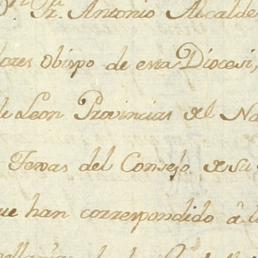 Fr. Antonio Alcalde
Obispo de esta Diocesi,
de Leon Provincias del Na
Texas del Consejo de su
que han correspondido â l